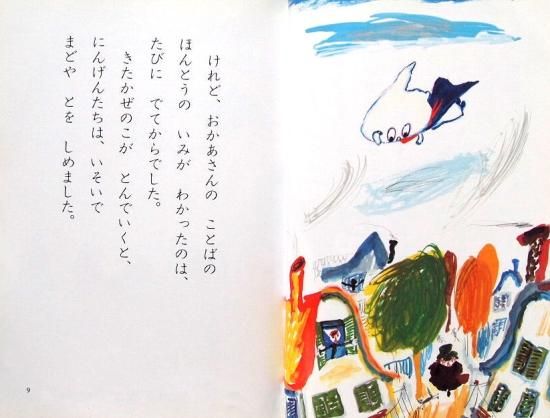 けれど、おかあさんの　ことばの
ほんとうの　いみが　わかったのは、
たびに　でてからでした。
きたかぜのこが　とんでいくと、
にんげんたちは、いそいで
まどや　とを　しめました。
9